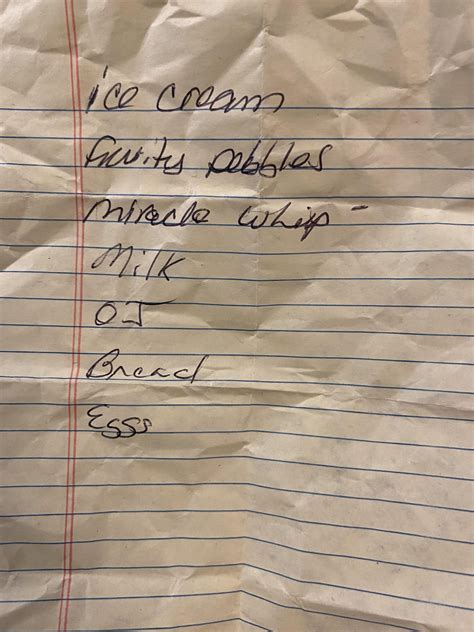 ice cream
fruity pebbles
miracle whip -
Milk
OJ
Bread
Eggs